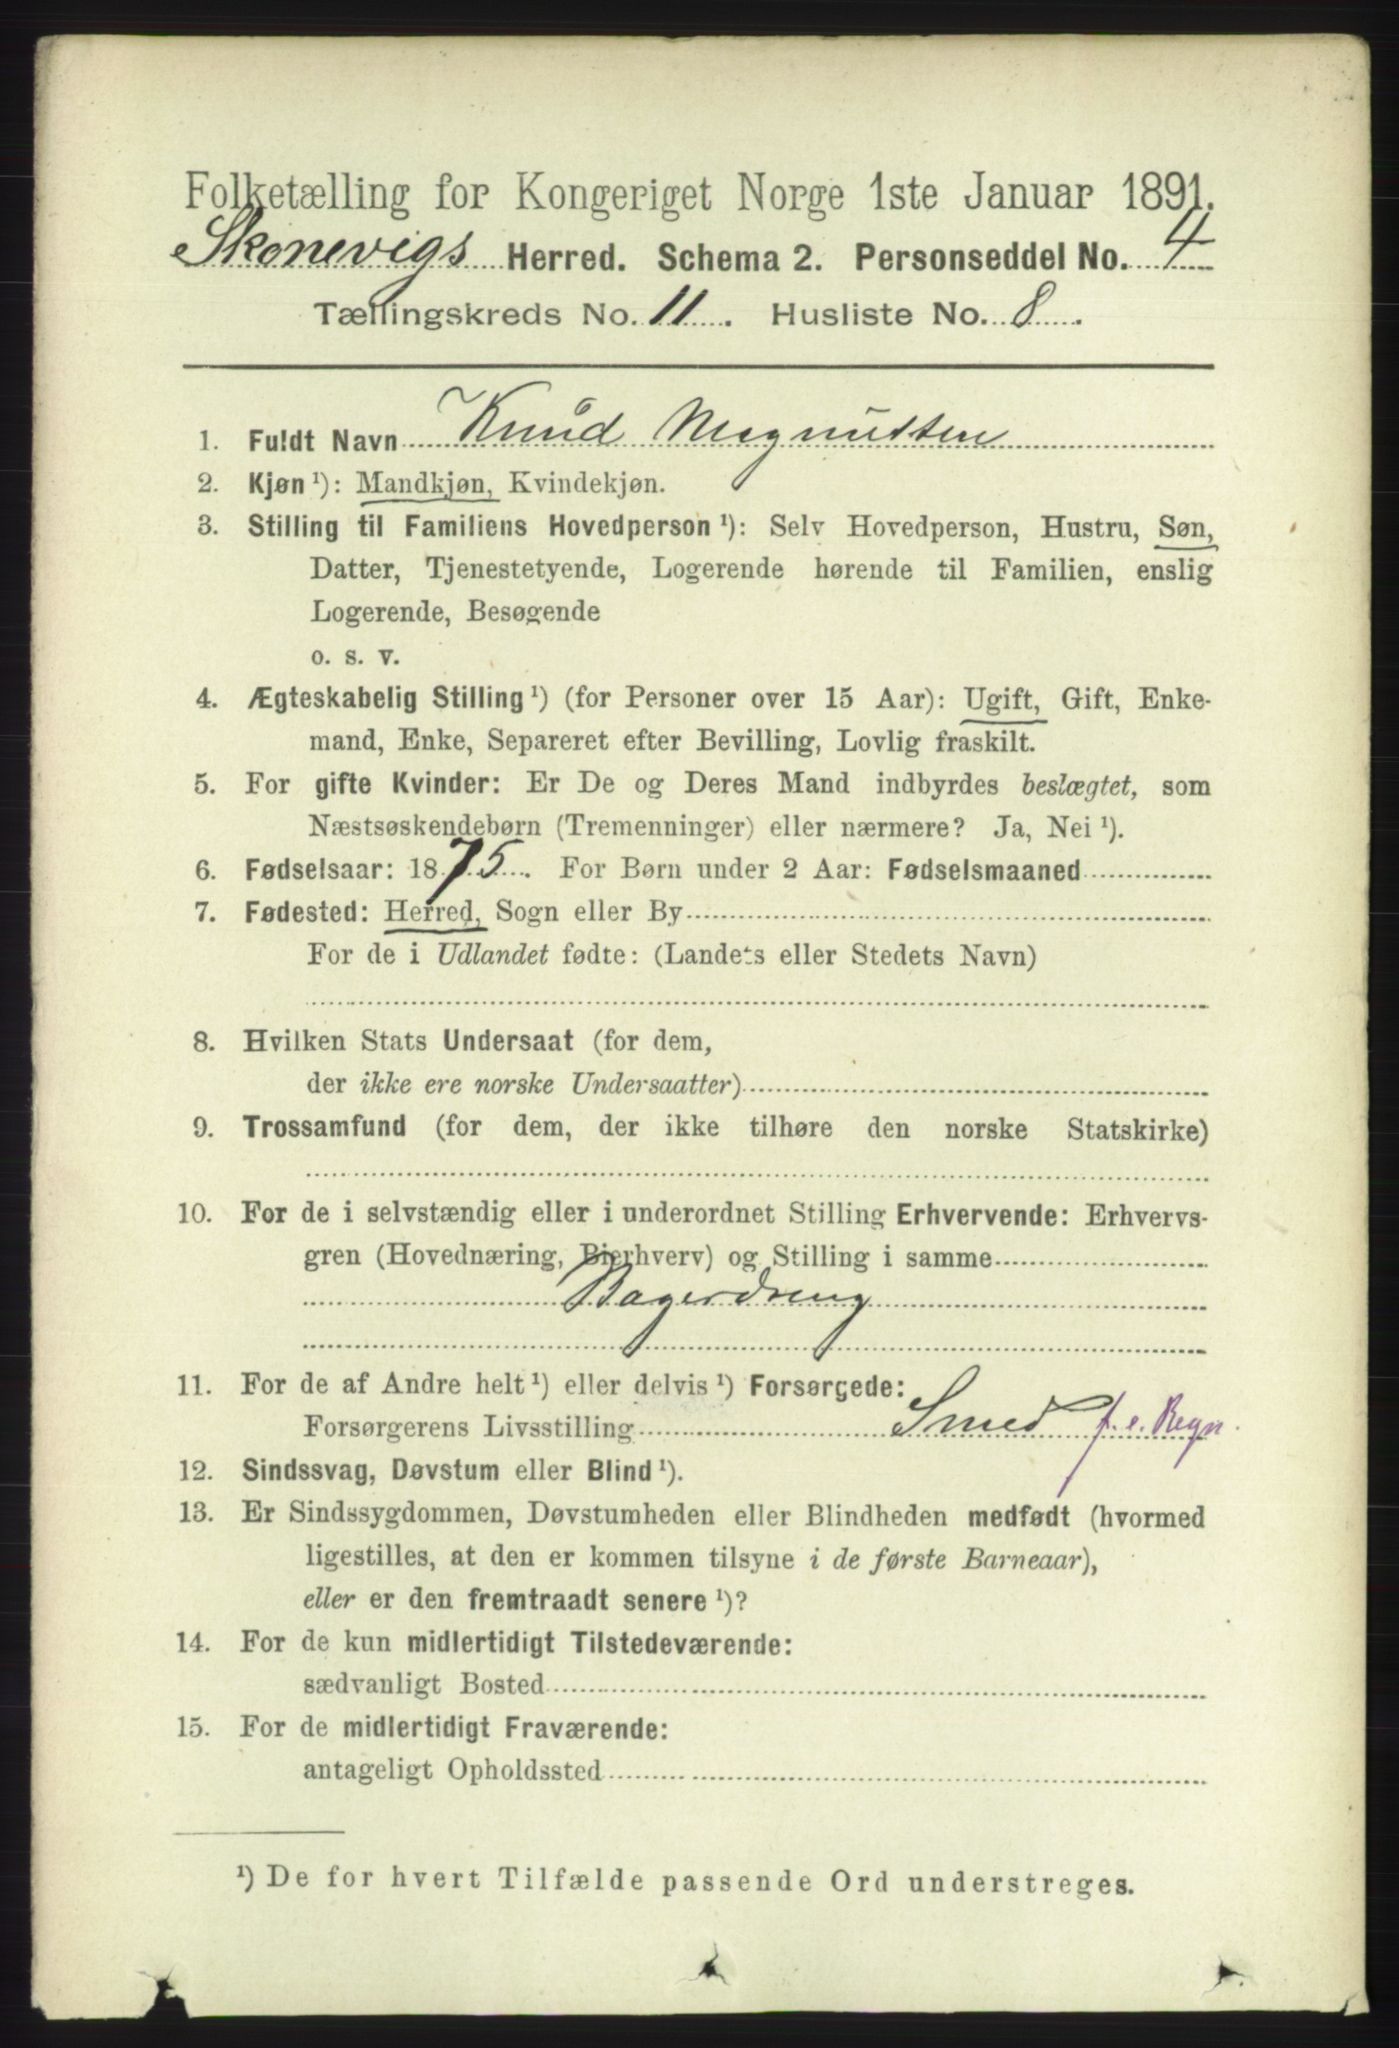 Folketælling for Kongeriget Norge 1ste Januar 1891.
Skonevigs Herred. Schema 2. Personseddel No. 4
Tællingskreds No. 11. Husliste No. 8.
1. Fuldt Navn Knud Magnussen
2. Kjøn ¹): Mandkjøn, Kvindekjøn.
3. Stilling til Familiens Hovedperson ¹): Selv Hovedperson, Hustru, Søn,
Datter, Tjenestetyende, Logerende hørende til Familien, enslig
Logerende, Besøgende
o. s. v.
4. Ægteskabelig Stilling ¹) (for Personer over 15 Aar): Ugift, Gift, Enke-
mand, Enke, Separeret efter Bevilling, Lovlig fraskilt.
5. For gifte Kvinder: Er De og Deres Mand indbyrdes beslægtet, som
Næstsøskendebørn (Tremenninger) eller nærmere? Ja, Nei ¹).
6. Fødselsaar: 1875. For Børn under 2 Aar: Fødselsmaaned
7. Fødested: Herred, Sogn eller By
For de i Udlandet fødte: (Landets eller Stedets Navn)
8. Hvilken Stats Undersaat (for dem,
der ikke ere norske Undersaatter)
9. Trossamfund (for dem, der ikke tilhøre den norske Statskirke)
10. For de i selvstændig eller i underordnet Stilling Erhvervende: Erhvervs-
gren (Hovednæring, Bierhverv) og Stilling i samme
Bagerdreng
11. For de af Andre helt ¹) eller delvis ¹) Forsørgede:
Forsørgerens Livsstilling Smed f. e. Regn.
12. Sindssvag, Døvstum eller Blind ¹).
13. Er Sindssygdommen, Døvstumheden eller Blindheden medfødt (hvormed
ligestilles, at den er kommen tilsyne i de første Barneaar),
eller er den fremtraadt senere ¹)?
14. For de kun midlertidigt Tilstedeværende:
sædvanligt Bosted
15. For de midlertidigt Fraværende:
antageligt Opholdssted
¹) De for hvert Tilfælde passende Ord understreges.